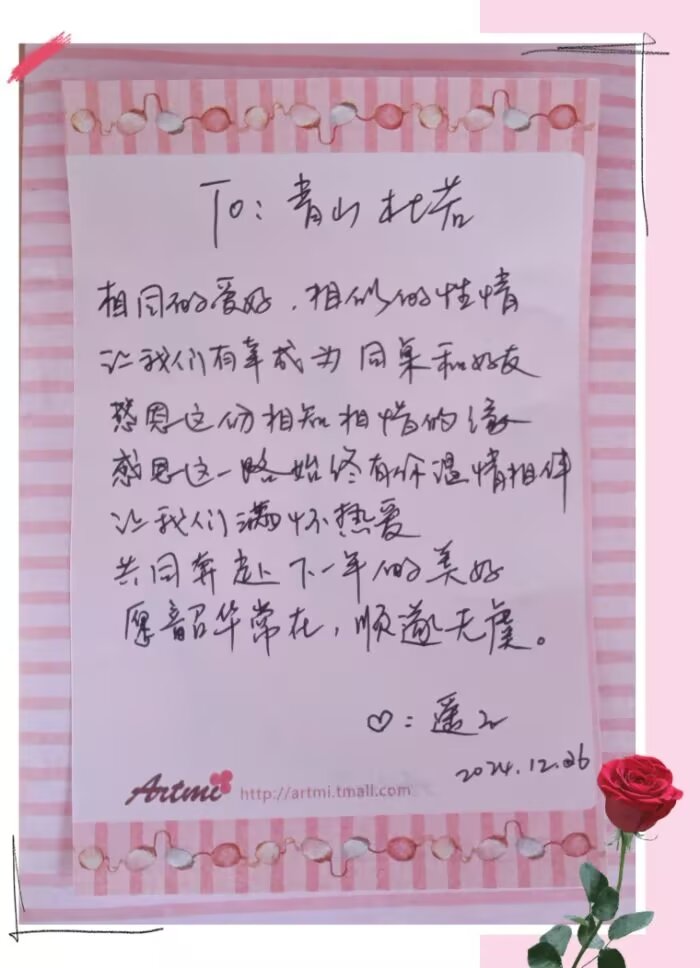 To: 青山杜若
相同的爱好,相似的性情
让我们有幸成为同集和好友
感恩这份相知相惜的缘
感恩这一路始终有你温情相伴
让我们满怀热爱
共同奔赴下一年的美好
愿韶华常在,顺遂无虞。
♡:遥
2024.12.26
Artmi http://artmi.tmall.com